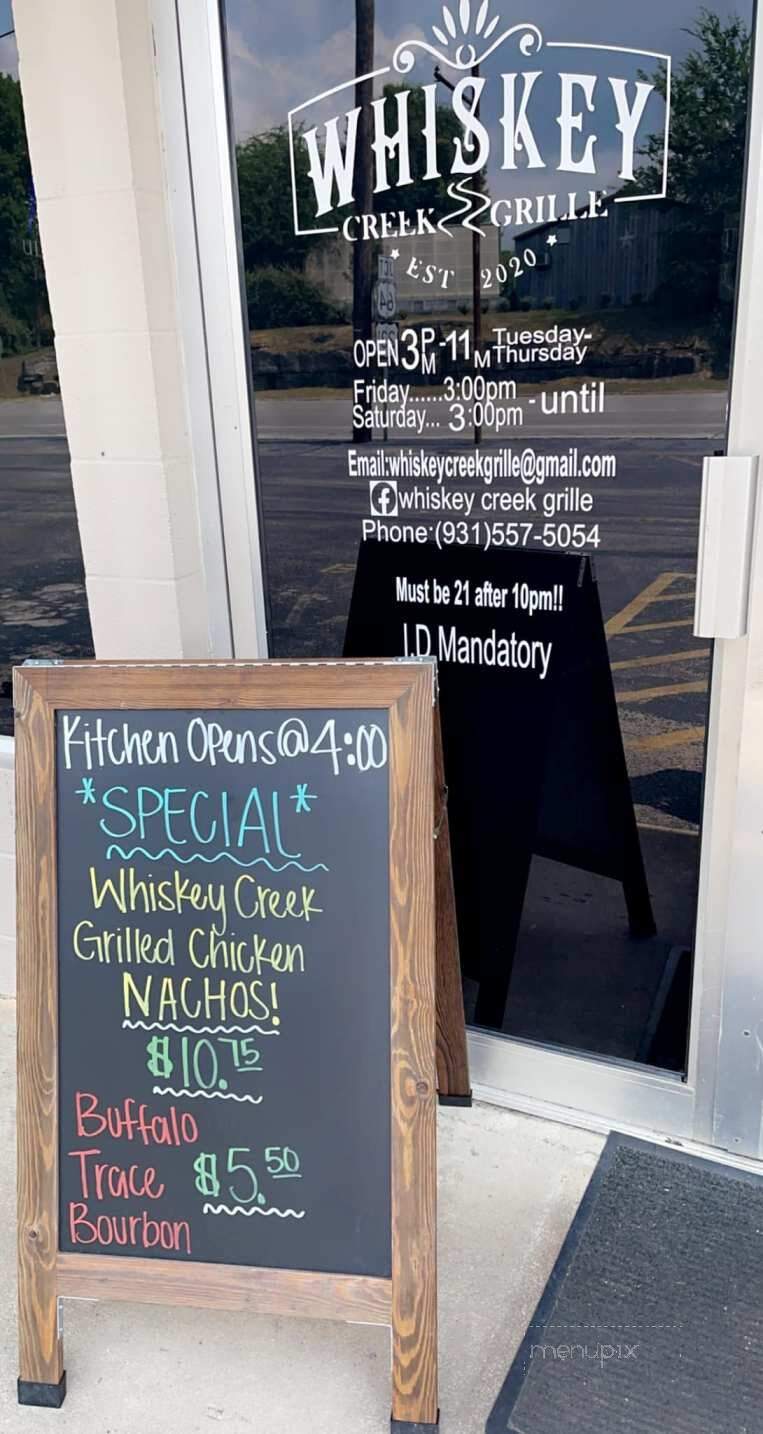 WHISKEY
CREEK GRILLE
EST 2020
OPEN 3PM-11 M Tuesday-Thursday
Friday......3:00pm -until
Saturday... 3:00pm
Email:whiskeycreekgrille@gmail.com
whiskey creek grille
Phone:(931)557-5054
Must be 21 after 10pm!!
I.D Mandatory
Kitchen Opens@4:00
*SPECIAL*
Whiskey Creek
Grilled Chicken
NACHOS!
$10.75
Buffalo
Trace $5.50
Bourbon
menupix